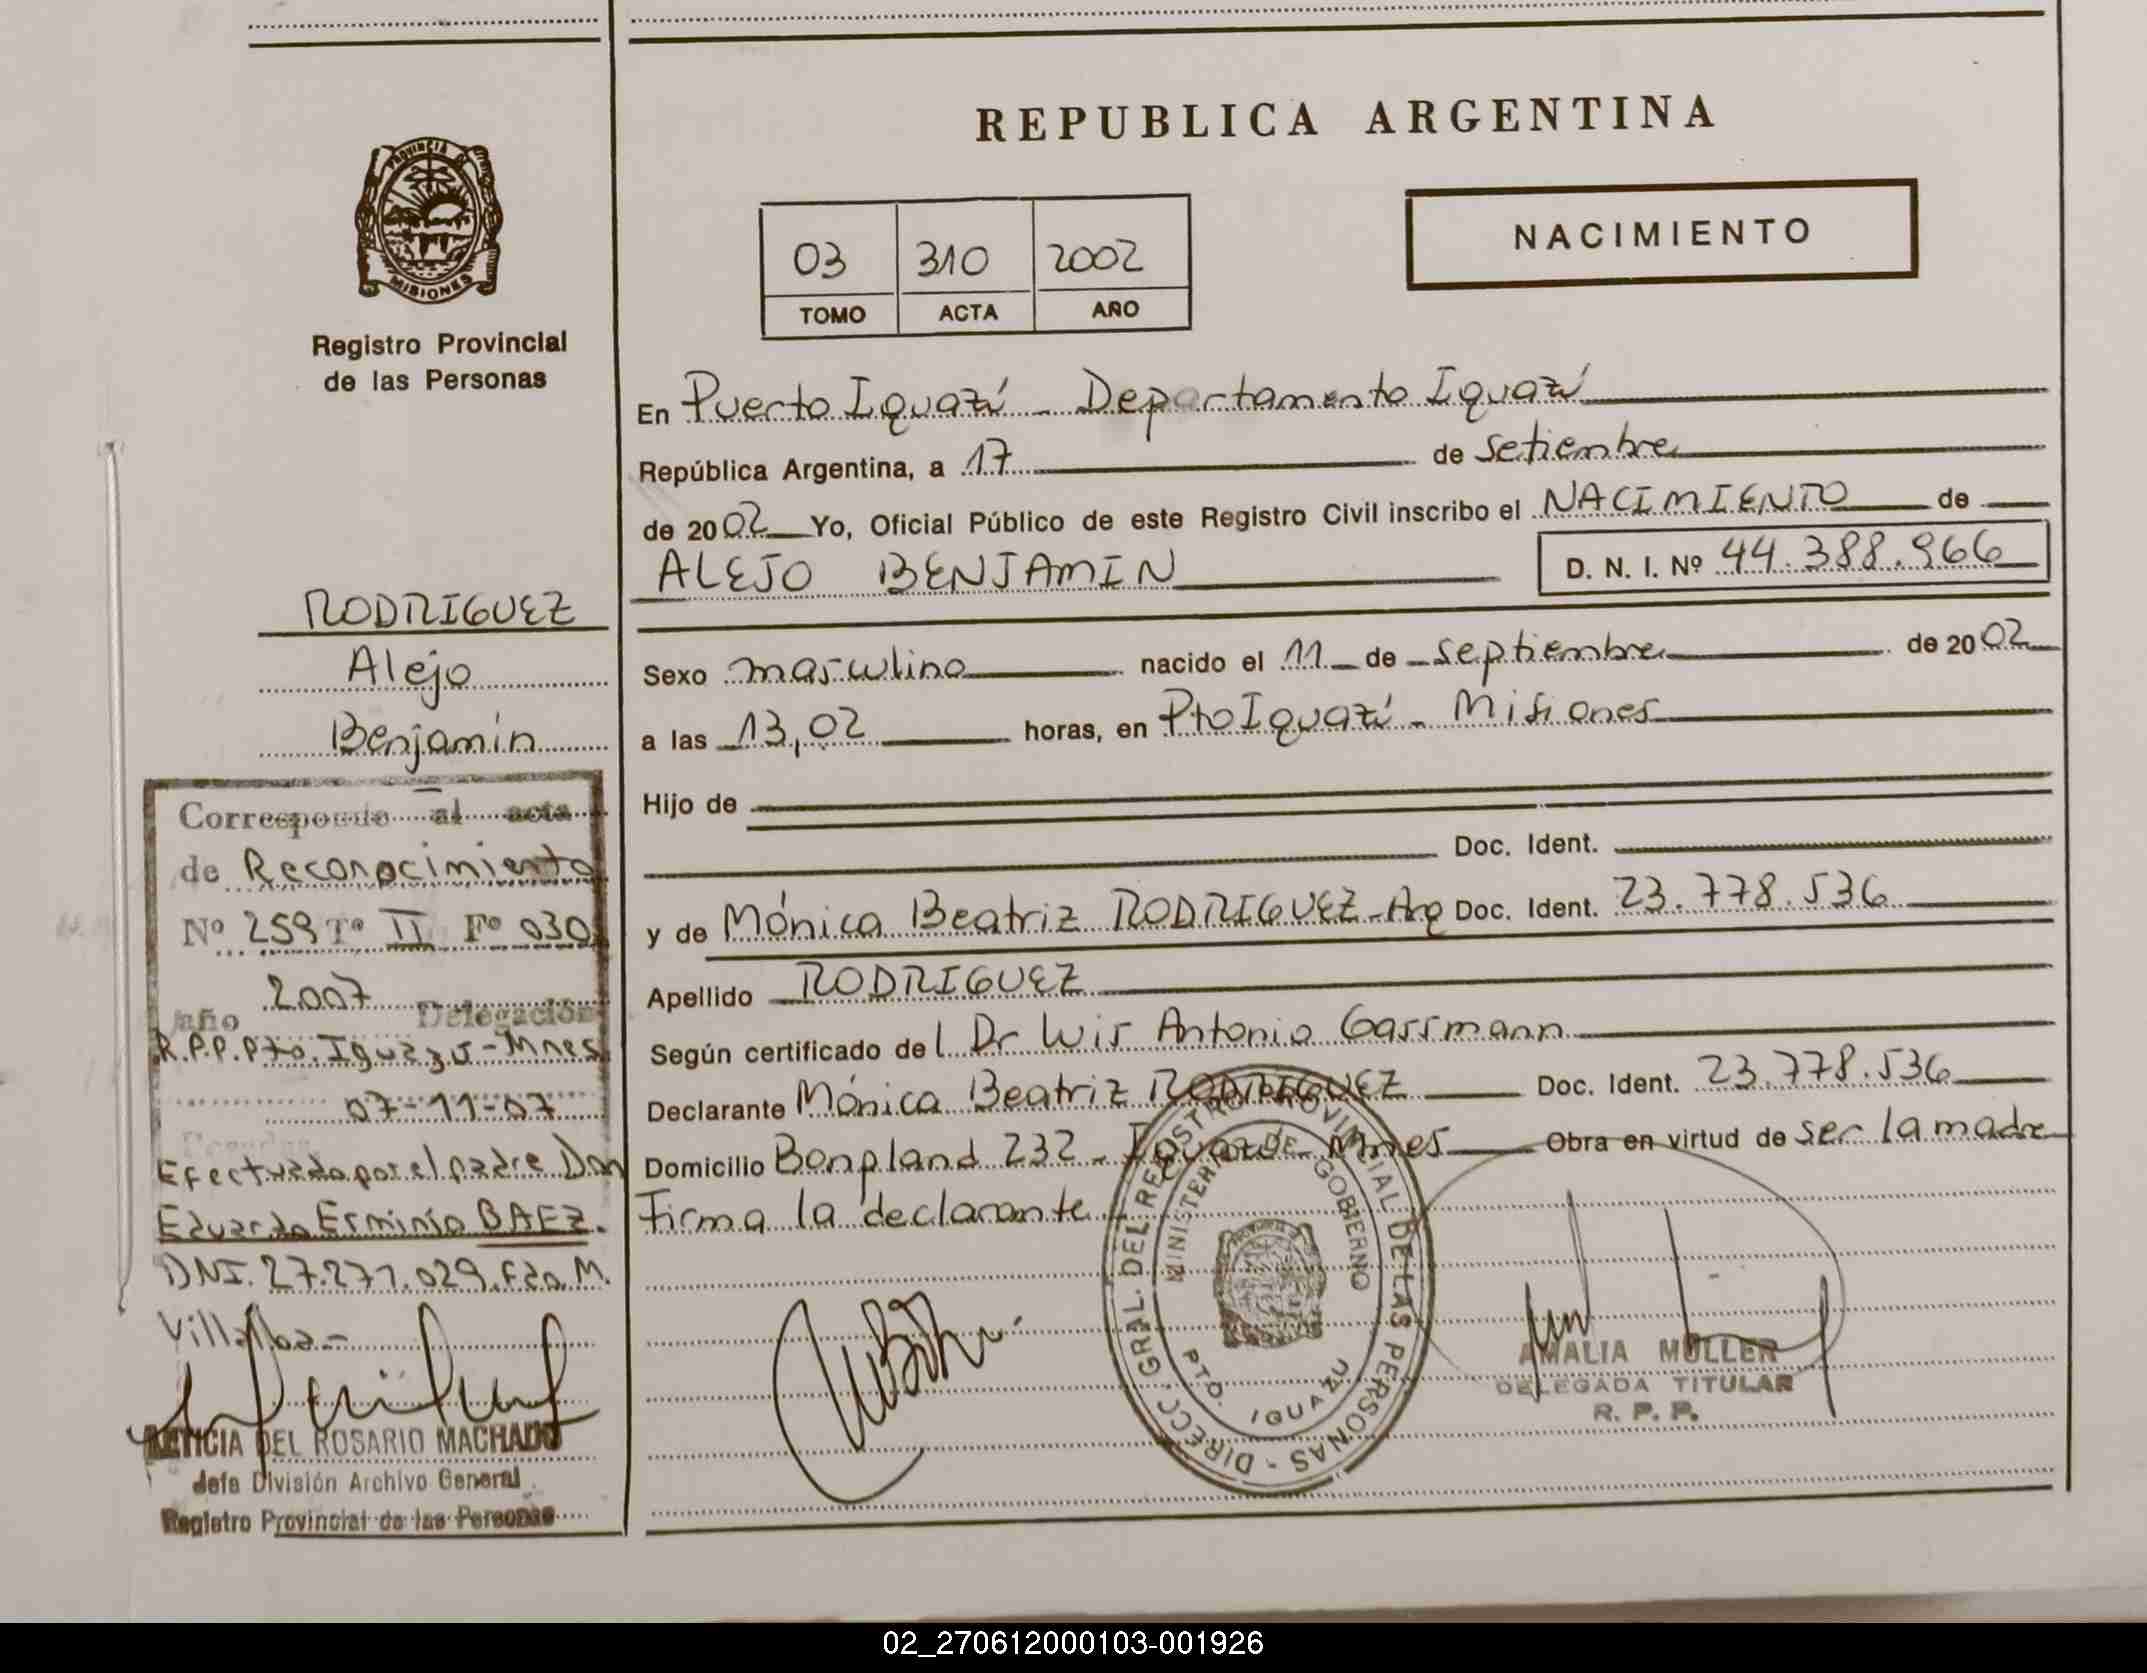 PROVINCIA DE
MISIONES
Registro Provincial
de las Personas
RODRIGUEZ
Alejo
Benjamín
Corresponde al acta
de Reconocimiento
Nº 259 Tº II Fº 030
año 2007 Delegación
R.P.P. Pto. Iguazú - Mnes
07-11-07
Efectuado por el padre Don
Eduardo Erminio BAEZ.
DNI. 27.271.029. Fdo. M.
Villalba -
LETICIA DEL ROSARIO MACHADO
Jefe División Archivo General
Registro Provincial de las Personas
REPUBLICA ARGENTINA
03 310 2002
TOMO ACTA AÑO
NACIMIENTO
En Puerto Iguazú - Departamento Iguazú
República Argentina, a 17 de Setiembre
de 2002 Yo, Oficial Público de este Registro Civil inscribo el NACIMIENTO de
ALEJO BENJAMIN D. N. I. Nº 44.388.966
Sexo masculino nacido el 11 de septiembre de 2002
a las 13,02 horas, en Pto Iguazú - Misiones
Hijo de
Doc. Ident.
y de Mónica Beatriz RODRIGUEZ - Arg Doc. Ident. 23.778.536
Apellido RODRIGUEZ
Según certificado del Dr Luis Antonio Gassmann
Declarante Mónica Beatriz RODRIGUEZ Doc. Ident. 23.778.536
Domicilio Bonpland 232 - Iguazú - Mnes Obra en virtud de ser la madre
Firma la declarante
DIRECC. GRAL. DEL REGISTRO PROVINCIAL DE LAS PERSONAS -
MINISTERIO DE GOBIERNO
PTO. IGUAZU
AMALIA MULLER
DELEGADA TITULAR
R. P. P.
02_270612000103-001926